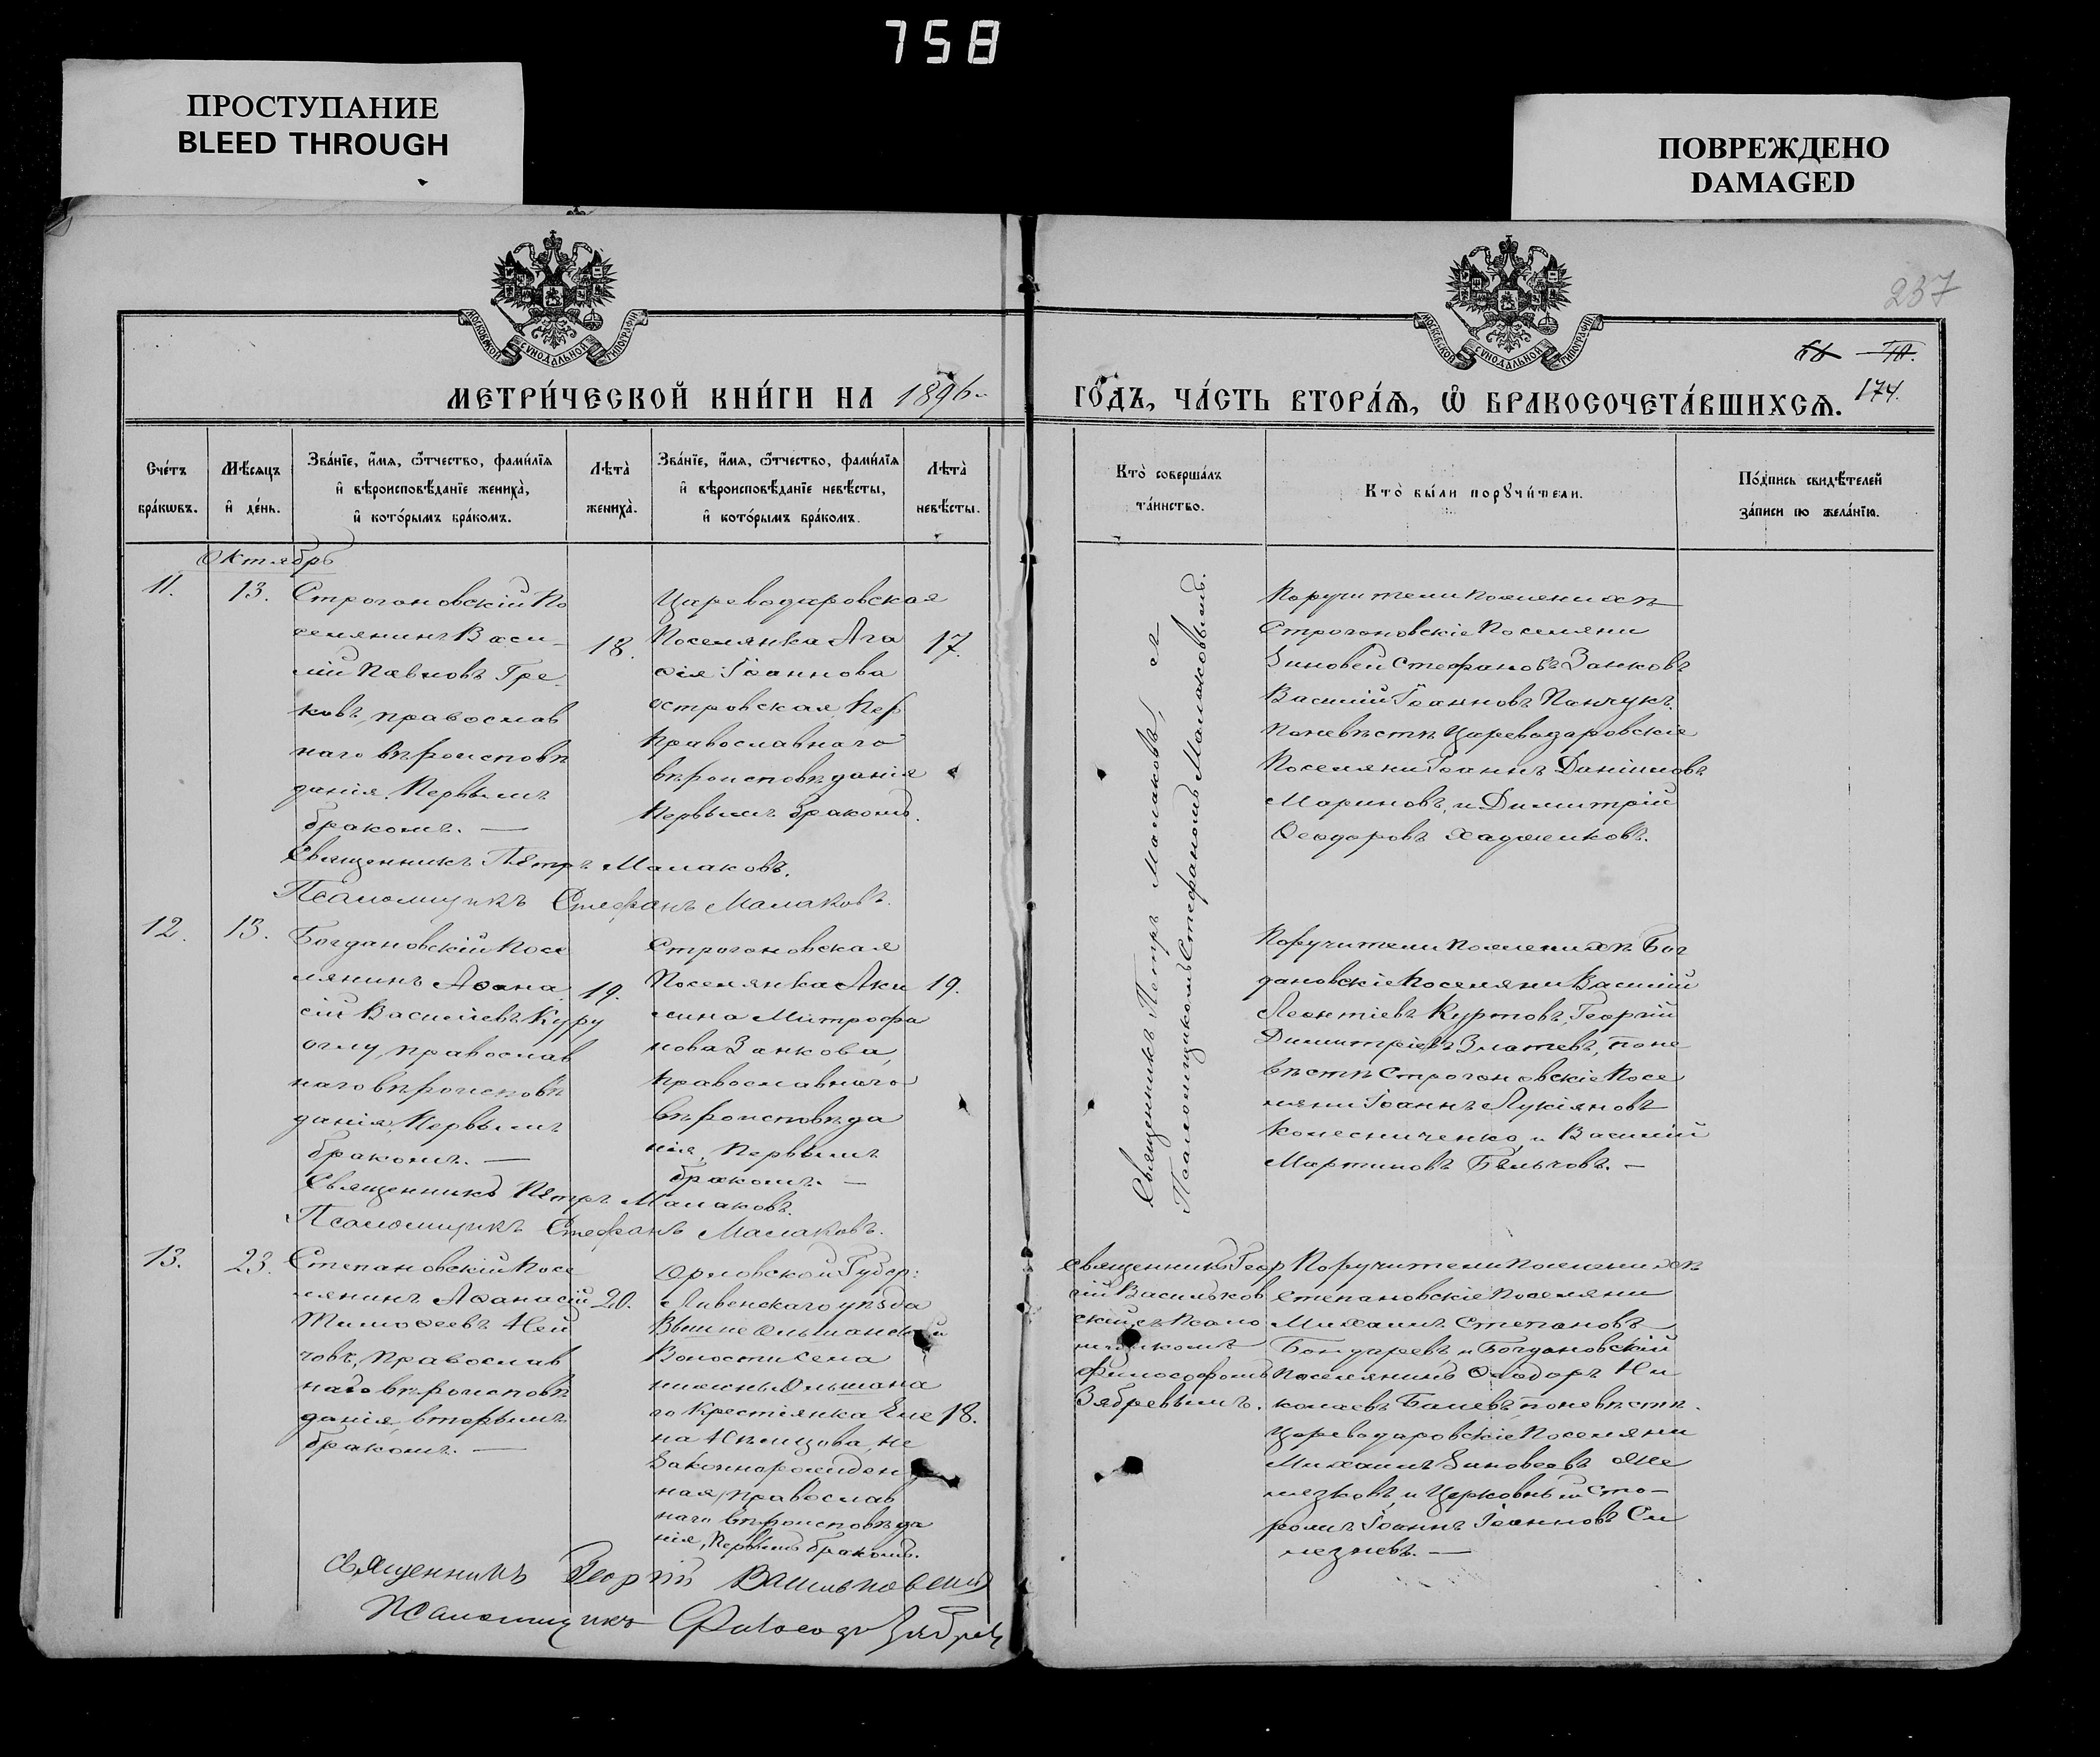 758
ПРОСТУПАНИЕ
BLEED THROUGH
ПОВРЕЖДЕНО
DAMAGED
237
МОСКОВСКОЙ СѴНОДАЛЬНОЙ ТИПОГРАФІИ
МОСКОВСКОЙ СѴНОДАЛЬНОЙ ТИПОГРАФІИ
МЕТРИ́ЧЕСКОЙ КНИ́ГИ НА 1896
ГО́ДЪ, ЧА́СТЬ ВТОРА́Ѧ, Ѡ҆ БРАКОСОЧЕТА́ВШИХСѦ.
174.
Сче́тъ
бра́кѡвъ.
Мѣ́сяцъ
и҆ де́нь.
Зва́нїе, и҆́мя, ѻ҆́тчество, фами́лїя
и҆ вѣроисповѣ́данїе жениха̀,
и҆ кото́рымъ бра́комъ.
Лѣта̀
жениха̀.
Зва́нїе, и҆́мя, ѻ҆́тчество, фами́лїя
и҆ вѣроисповѣ́данїе невѣ́сты,
и҆ кото́рымъ бра́комъ.
Лѣта̀
невѣ́сты.
Кто̀ соверша́лъ
та́инство.
Кто̀ бы́ли порꙋчи́тели.
По́дпись свидѣ́телей
за́писи по жела́нїю.
Октябрь
11.
13.
Строгоновскій По
селянинъ Васи-
лій Павловъ Гре-
ковъ, православ
наго вѣроисповѣ
данія, Первымъ
бракомъ. —
18.
Цареводаровская
Поселянка Ага
ѳія Іоаннова
Островская
Православнаго
вѣроисповѣданія
Первымъ бракомъ.
17.
Священникъ Петръ Малаковъ, съ
Псаломщикомъ Стефаномъ Малаковымъ.
Поручители по женихѣ
Строгоновскіе Поселяни
Зиновей Стефановъ Занковъ
Василій Іоанновъ Панчукъ.
По невѣстѣ Цареводаровскіе
Поселяни Іоаннъ Даніиловъ
Мариновъ, и Димитрій
Ѳеодоровъ Хаджиковъ.
Священникъ Петръ Малаковъ.
Псаломщикъ Стефанъ Малаковъ.
12.
13.
Богдановскій Посе
лянинъ Аѳана
сій Васильевъ Куру
оглу, православ
наго вѣроисповѣ
данія, Первымъ
бракомъ. —
19.
Строгоновская
Поселянка Аки
лина Митрофа
нова Занкова,
Православнаго
вѣроисповѣда
нія, Первымъ
бракомъ. —
19.
Поручители по женихѣ Бог
дановскіе Поселяни Василій
Леонтіевъ Куртовъ, Георгій
Димитріевъ Златевъ, по не
вѣстѣ Строгоновскіе Посе
ляни Іоаннъ Лукіяновъ
Колесниченко, и Василій
Мартиновъ Бѣльчовъ. —
Священникъ Петръ Малаковъ.
Псаломщикъ Стефанъ Малаковъ.
13.
23.
Степановскій Посе
лянинъ Аѳанасій
Тимоѳеевъ Ней
човъ, Православ
наго вѣроисповѣ
данія, вторымъ
бракомъ. —
20.
Орловской Губер:
Ливенскаго уѣзда
Вышне Ольшанской
Волости села
нижнь Ольшана
го Крестіянка Еле
на Нѣмцова, не
Законнорожден
ная, Православ
наго вѣроисповѣда
нія, Первымъ бракомъ.
18.
Священникъ Геор
гій Васильков
скій, съ Псало
мщикомъ
Философомъ
Зябревымъ.
Поручители по женихѣ
Степановскіе Поселяни
Михаилъ Степановъ
Бондаревъ и Богдановскій
Поселянинъ Ѳеодоръ Ни
колаевъ Балевъ, по невѣстѣ
Цареводаровскіе Поселяни
Михаилъ Зиновеевъ Же
лязковъ, и Церковный Сто-
рожъ Іоаннъ Іоанновъ Се
лезневъ. —
Священникъ Георгій Васильковскій
Псаломщикъ Философъ Зябрев